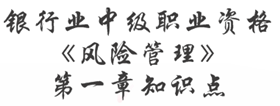 银行业中级职业资格
《风险管理》
第一章知识点